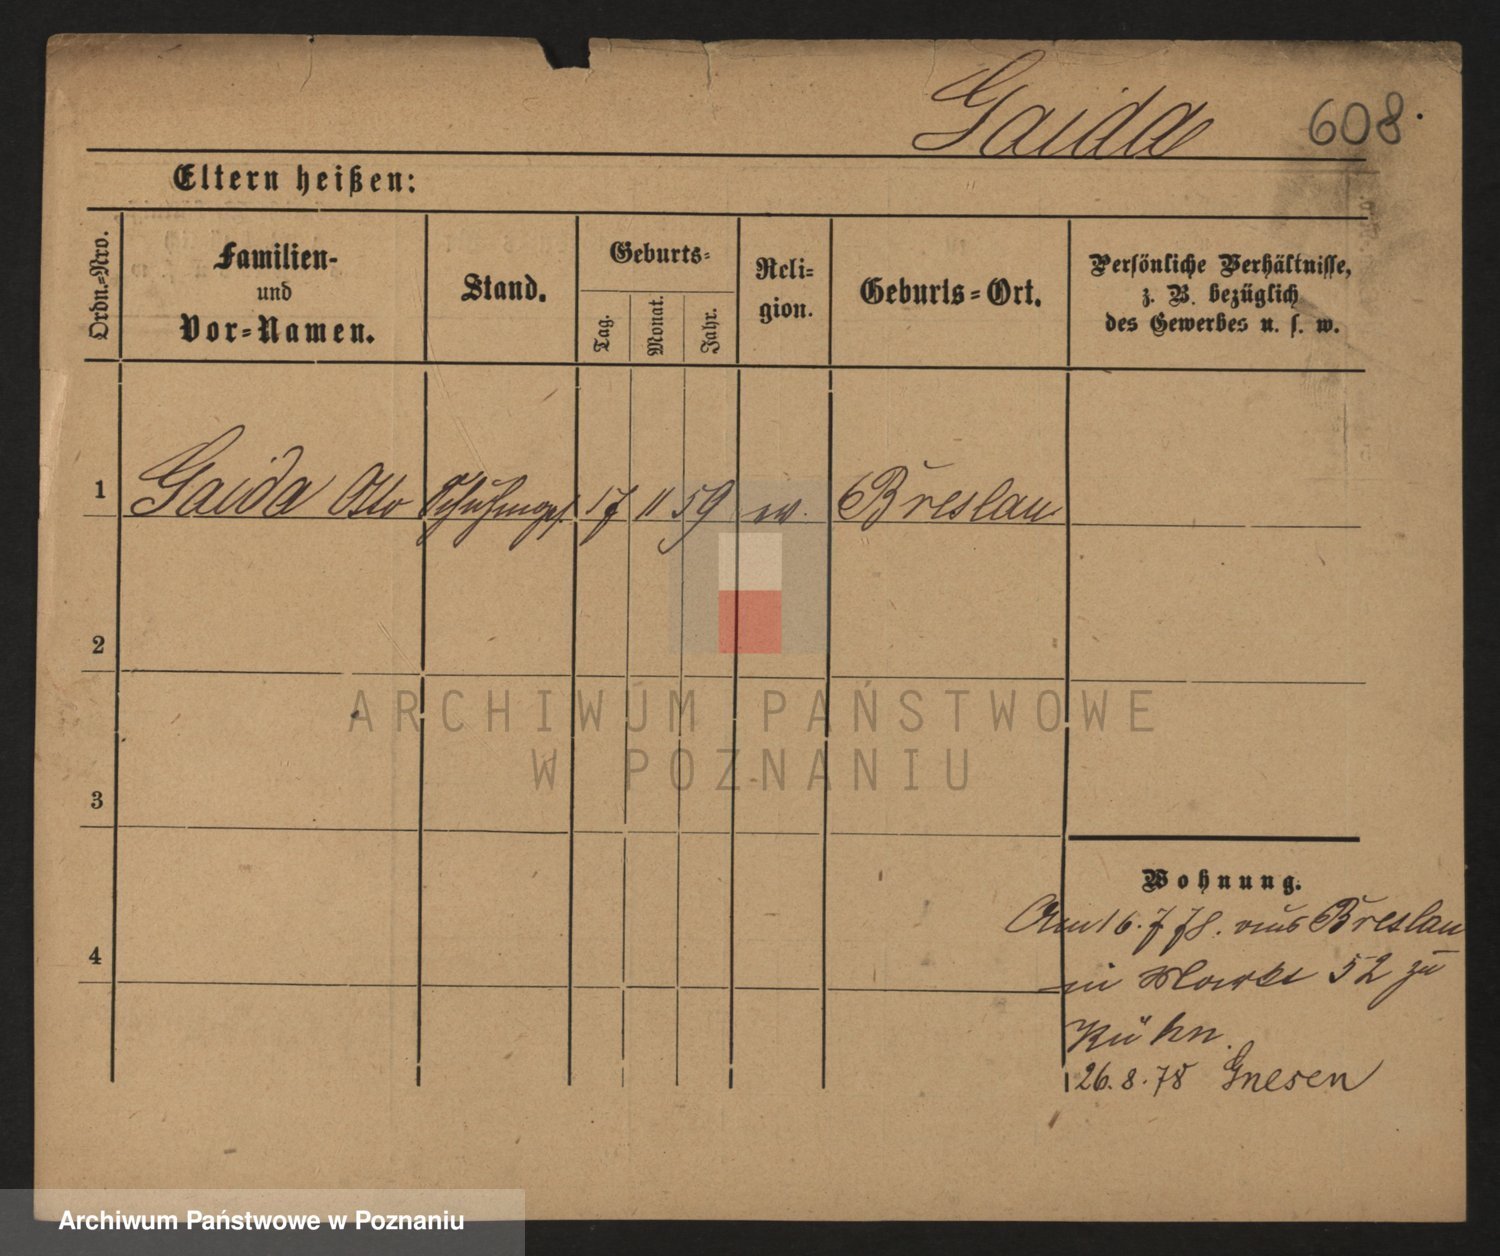 Gaida 608.
Eltern heißen:
Ordn.-Nro.
Familien-
und
Vor-Namen.
Stand.
Geburts-
Tag.
Monat.
Jahr.
Reli-
gion.
Geburts-Ort.
Persönliche Verhältnisse,
z. B. bezüglich
des Gewerbes u. s. w.
1 Gaida Otto 17 11 59 ev. Breslau
2
3
4
Wohnung.
Am 16. 7 78. aus Breslau
in Markt 52 zu
Kühn.
26. 8. 78 Gnesen
ARCHIWUM PAŃSTWOWE
W POZNANIU
Archiwum Państwowe w Poznaniu